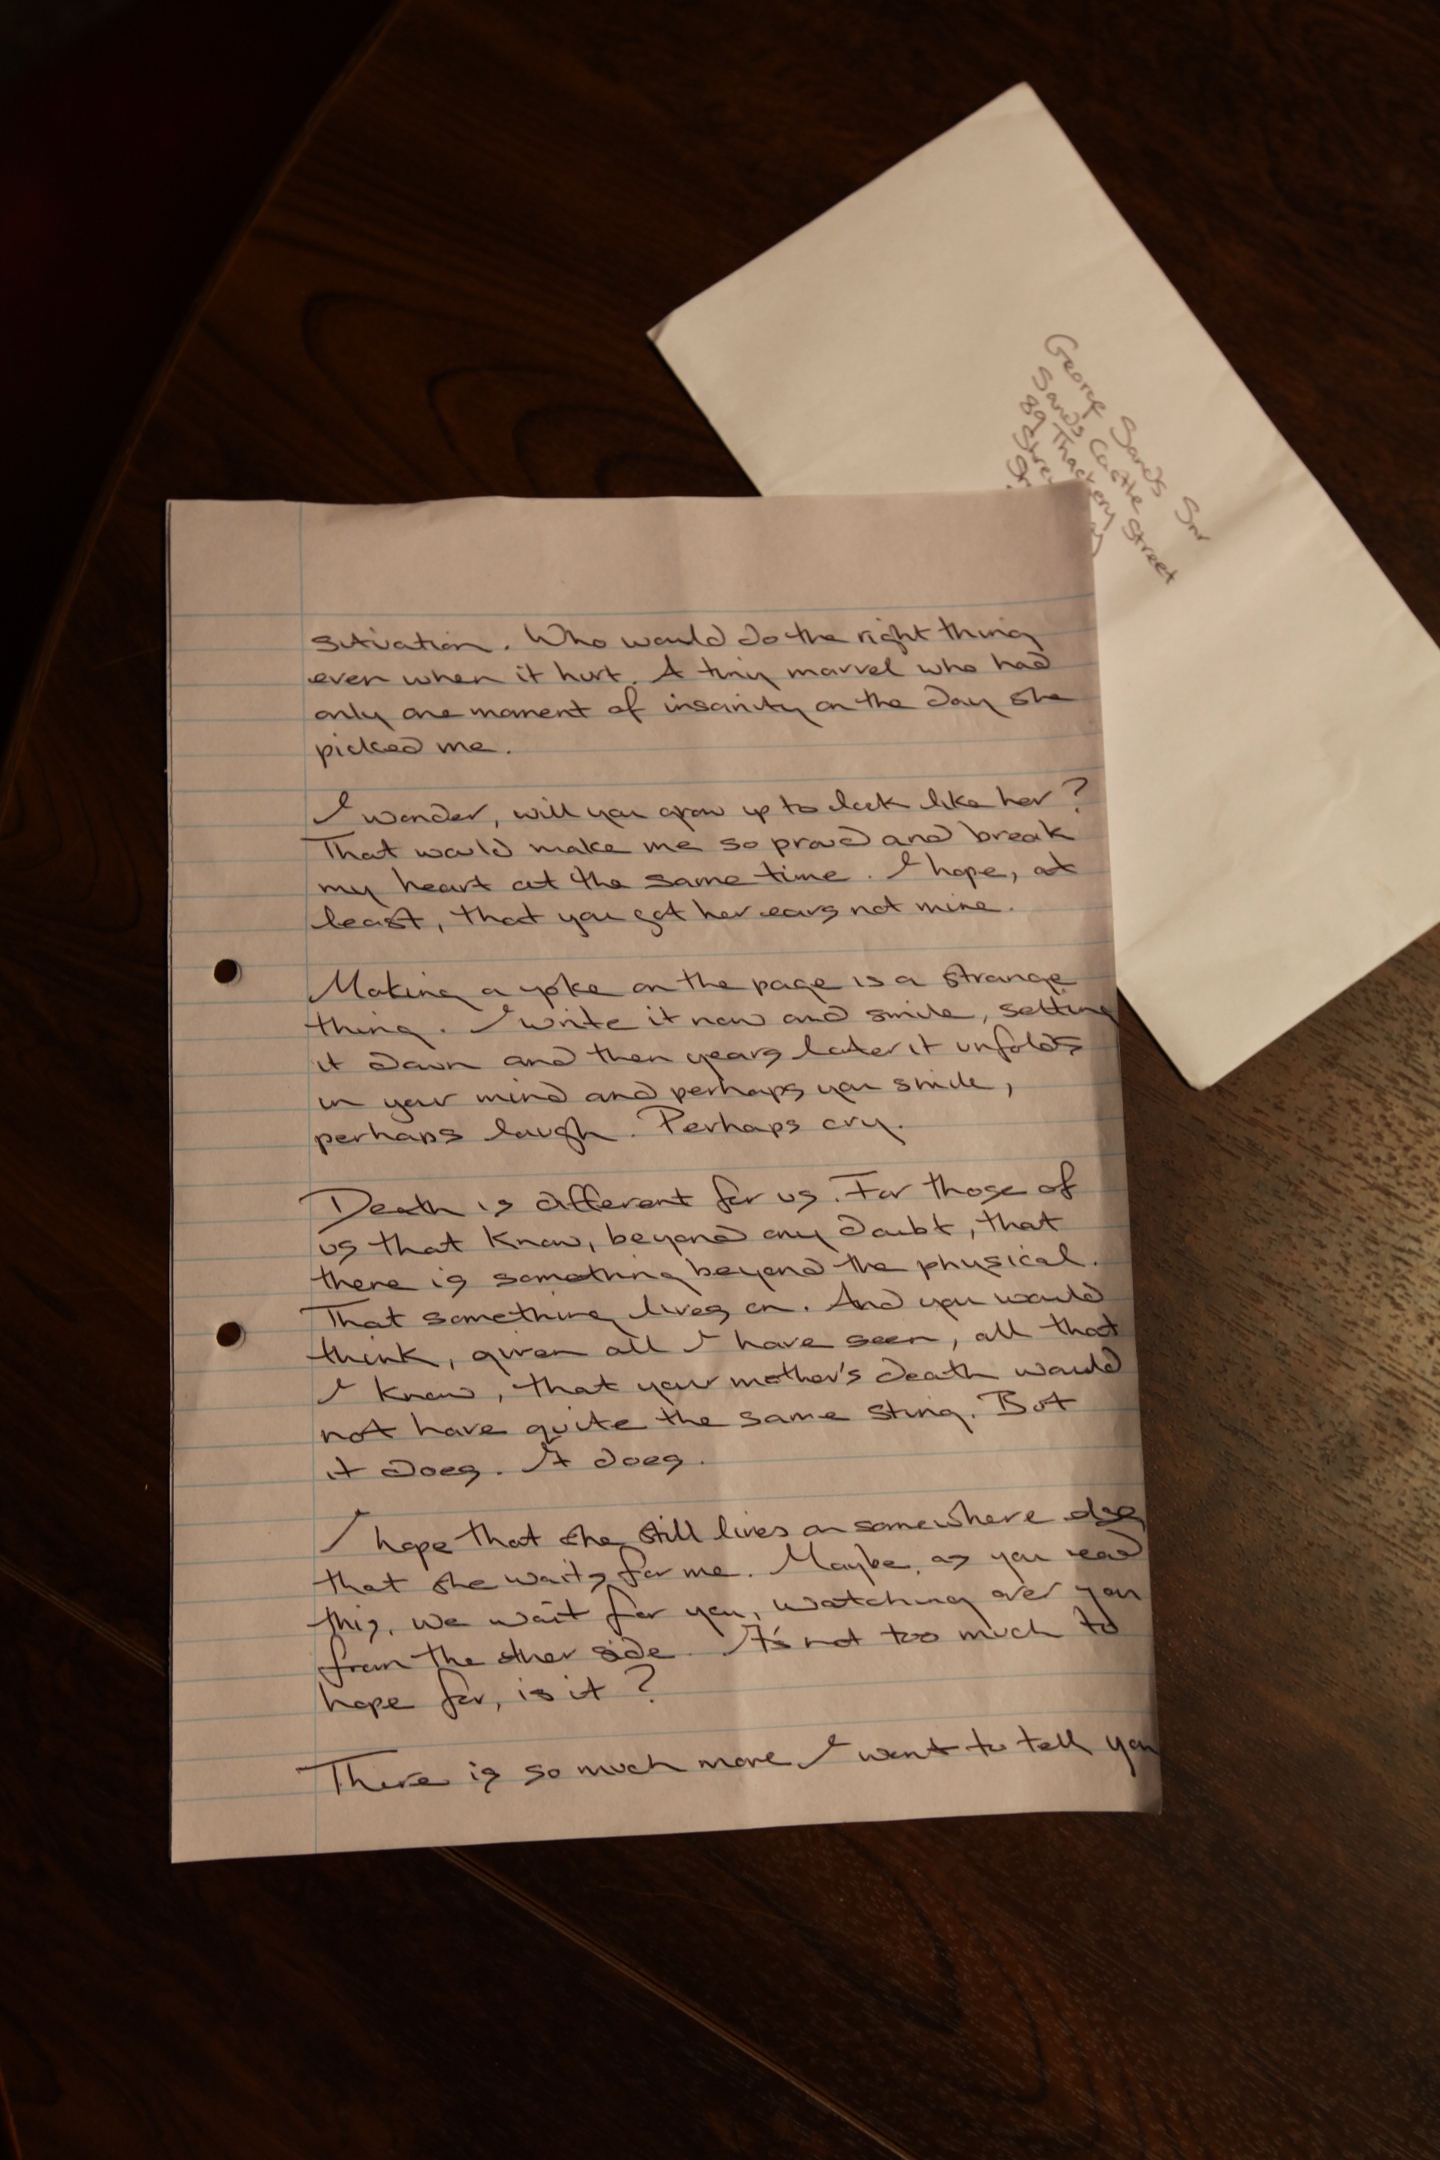 George Sands Snr
Sands Castle
89 Thackery Street
situation. Who would do the right thing
even when it hurt. A tiny marvel who had
only one moment of insanity on the day she
picked me.
I wonder, will you grow up to look like her?
That would make me so proud and break
my heart at the same time. I hope, at
least, that you got her ears not mine.
Making a joke on the page is a strange
thing. I write it now and smile, setting
it down and then years later it unfolds
in your mind and perhaps you smile,
perhaps laugh. Perhaps cry.
Death is different for us. For those of
us that know, beyond any doubt, that
there is something beyond the physical.
That something lives on. And you would
think, given all I have seen, all that
I know, that your mother's death would
not have quite the same sting. But
it does. It does.
I hope that she still lives on somewhere else
that she waits for me. Maybe, as you read
this, we wait for you, watching over you
from the other side. It's not too much to
hope for, is it?
There is so much more I want to tell you